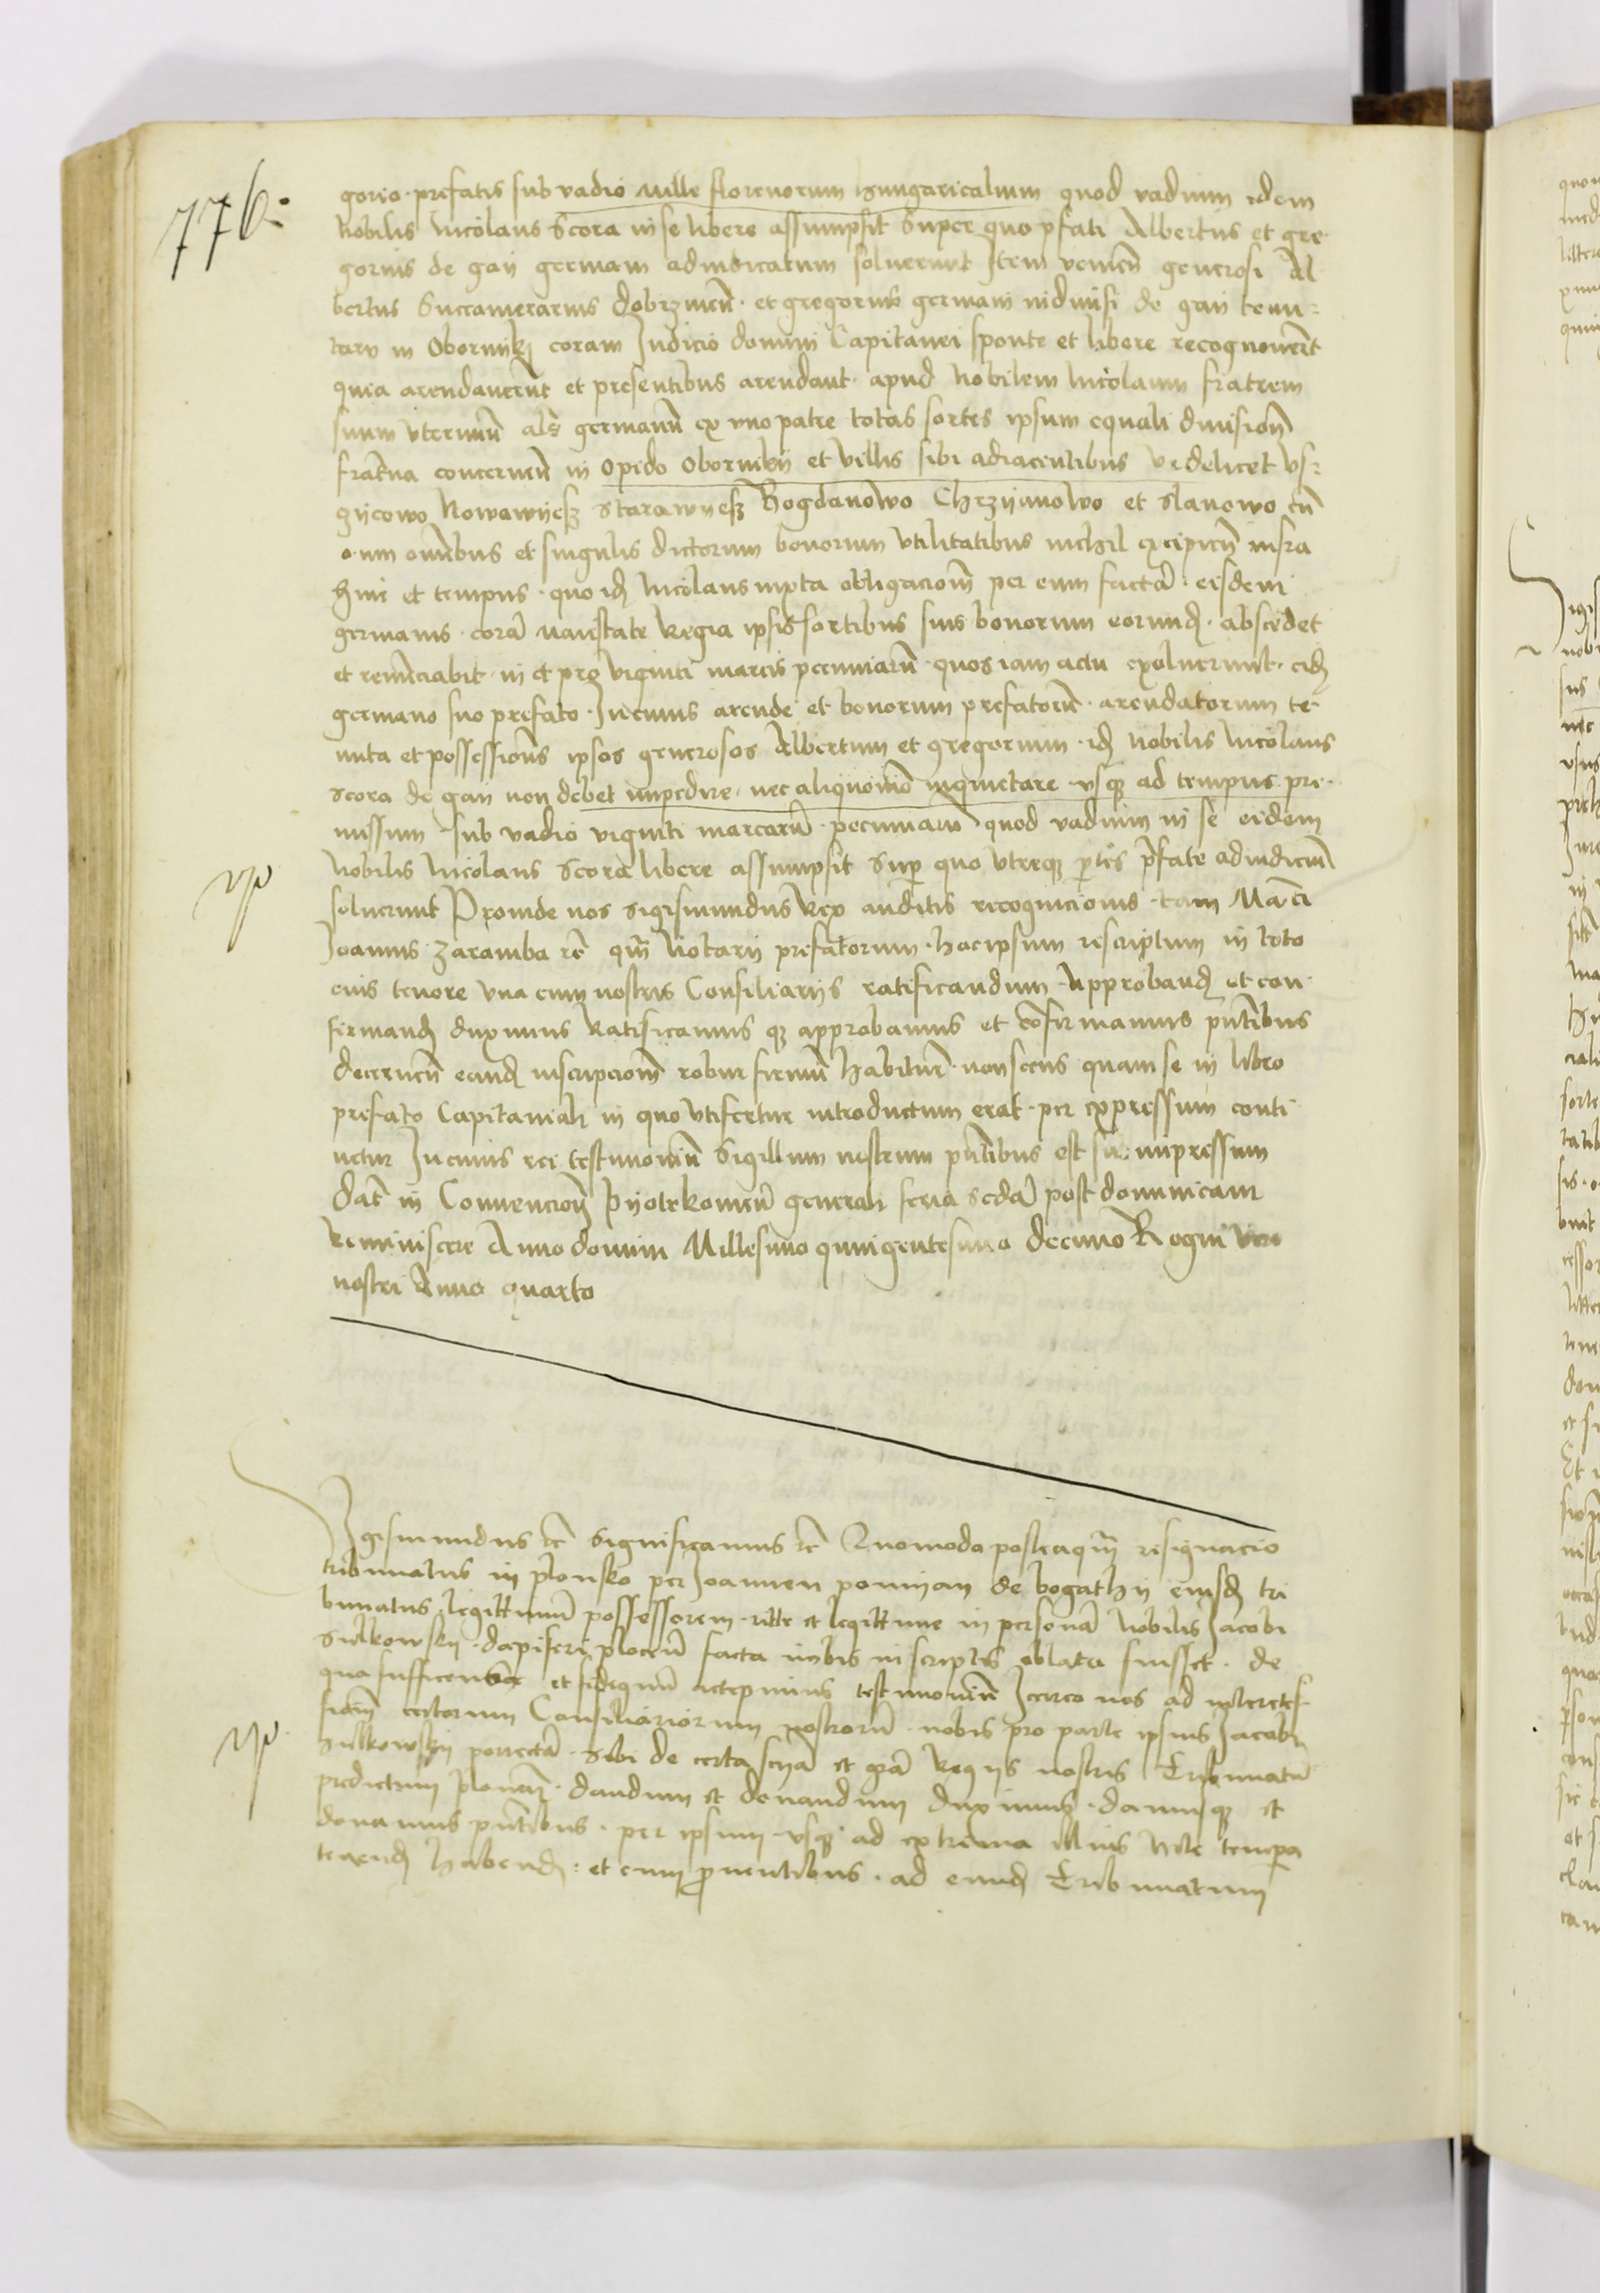 776.
gorio prefatis sub vadio mille florenorum hungaricalium quod vadium idem
Nobilis Nicolaus Scora in se libere assumpsit Super quo pfati Albertus et gre
gorius de gaij germani adiudicatum solverunt Item veniēn generosi Al
bertus Succamerarius dobrzineñ et gregorius germani indiuisi de gaij tenu
tarii in Obornikj coram Judicio domini Capitanei sponte et libere recognouerūt
quia arendauerūt et presentibus arendant apud Nobilem Nicolaum fratrem
suum vterinū als germanū ex vno patre totas sortes ipsum equali diuisionē
fraterna concerneñ in opido Obornikij et villis sibi adiacentibus videlicet
Nowawijesz Starawijesz Bogdanowo Chrzijanowo et Slanowo cū
omnibus et singulis dictorum bonorum vtilitatibus nichil excipieñ infra
hinc et tempus quo idē Nicolaus iuxta obligacionē per eum factā eisdem
germanis corā Maiestate Regia ipsis sortibus suis bonorum eorundē abscedet
et renūciabit in et pro viginti marcis pecuniarū quos iam actu exoluerunt eidē
germano suo prefato In cuius arende et bonorum prefatorū arendatorum te
nuta et possessione ipsos generosos Albertum et gregorium idē Nobilis Nicolaus
Scora de gaij non debet impedire nec aliquomō inquietare vsqz ad tempus pre
missum sub vadio viginti marcarū pecuniarū quod vadium in se eidem
Nobilis Nicolaus Scora libere assumpsit Sup quo vtreqz ptes pfate adiudicatū
soluerunt Proinde nos Sigismundus Rex auditis recognicionis tam Mācī
Joannis Zaramba rē qm̄ Notarij prefatorum hac ipsum rescriptum in toto
eius tenore vna cum nostris Consiliarijs ratificandum Approbandē et con
firmandē duximus Ratificamusqz approbamus et cōfirmamus pn̄tibus
decerneñ eandē inscripcionē robur firmū habiturā non secus quam se in libro
prefato Capitaniali in quo vti fertur introductum erat per expressum conti
netur In cuius rei testimoniū Sigillum nostrum pn̄tibus est sub impressum
Dat̄ in Conuencionē Pijotrkouieñ generali feria Scdā post dominicam
Reminiscere Anno domini Millesimo quingentesimo decimo Regni vero
nostri Anno quarto
Sigismundus rē Significamus rē Quomodo posteaqm̄ resignacio
tribunatus in plonsko per Joannem ponijan de bogathij eiusdē tri
bunatus legittimū possessorem ritte et legittime in personā Nobilis Jacobi
Sulkowskij dapiferi ploceñ facta nobis in scriptis oblata fuisset de
qua sufficens et fidedignū accepimus testimoniū Iccirco nos ad interces
sionē certorum Consiliariorum nostrorū nobis pro parte ipsius Jacobi
Sulkowskij porrectā Sibi de certa sciā et grā Regijs nostris Tribunatū
predictum ploneñ dandum et donandum duximus damusqz et
donamus pn̄tibus per ipsum vsqz ad extrema illius vite tempora
tenendē habendē et cum prouentibus ad eundē Tribunatum